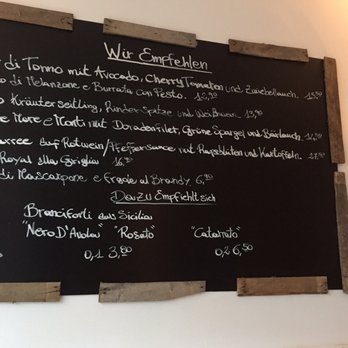 Wir Empfehlen
di Tonno mit Avocado, Cherry Tomaten und Zwiebellauch.
di Melanzane e Burrata con Pesto. 12,90
Kräuterseitling, Rinder Spitze und Weißwein. 13,90
Mare e Monti mit Doradenfilet, Grüne Spargel und Bärlauch
auf Rotwein/Pfeffersauce mit Rapsblüten und Kartoffeln.
Royal alla Griglia 16,90
di Mascarpone e Fragole al Brandy 6,90
Dazu Empfiehlt sich
Branciforti aus Sicilia
"Nero D'Avola" "Rosato" "Catarratto"
0,1 3,80 0,2 6,50